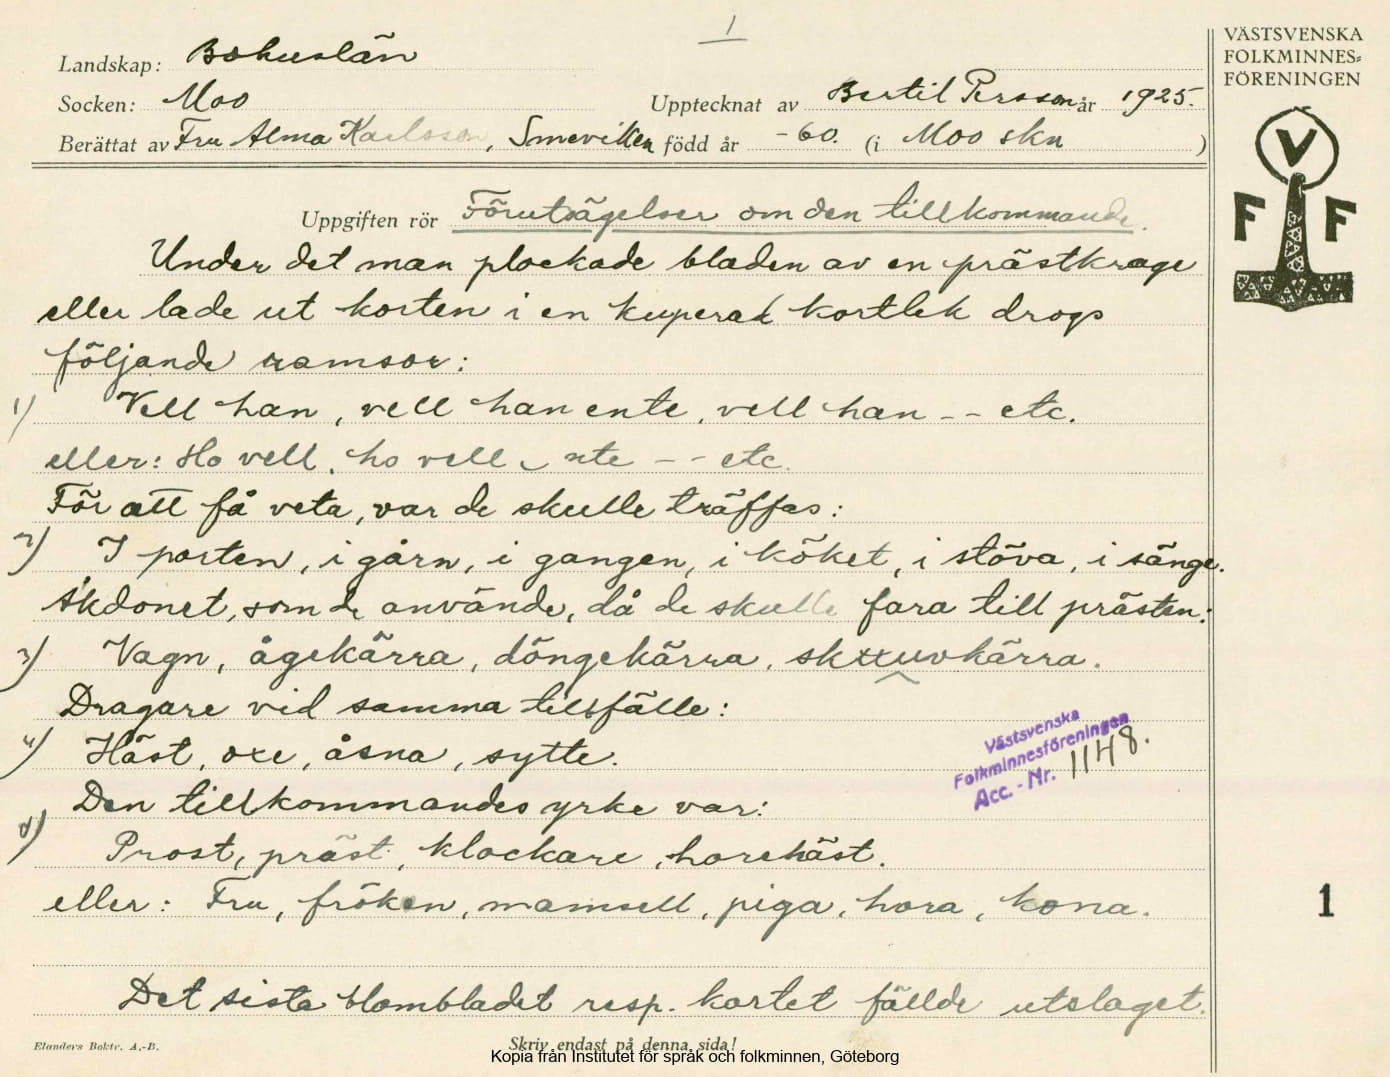 1
Landskap: Bohuslän
VÄSTSVENSKA
FOLKMINNES=
FÖRENINGEN
Socken: Moo
Upptecknat av Bertil Persson år 1925.
Berättat av Fru Alma Karlsson, Smeviken född år -60. (i Moo skn )
V
F F
Uppgiften rör Förutsägelser om den tillkommande.
Under det man plockade bladen av en prästkrage
eller lade ut korten i en kuperad kortlek drogs
följande ramsor:
1) Vell han, vell han ente, vell han -- etc.
eller: Ho vell, ho vell nte -- etc.
För att få veta, var de skulle träffas:
2) I porten, i gårn, i gangen, i köket, i stöva, i sänge.
Åkdonet, som de använde, då de skulle fara till prästen:
3) Vagn, ågekärra, döngekärra, skxxuvkärra.
Dragare vid samma tillfälle:
4) Häst, oxe, åsna, sytte.
Västsvenska
Folkminnesföreningen
Acc. - Nr. 1148.
Den tillkommandes yrke var:
5) Prost, präst, klockare, horekäst.
eller: Fru, fröken, mamsell, piga, hora, kona.
1
Det sista blombladet resp. kortet fällde utslaget.
Elanders Boktr. A.-B.
Skriv endast på denna sida!
Kopia från Institutet för språk och folkminnen, Göteborg